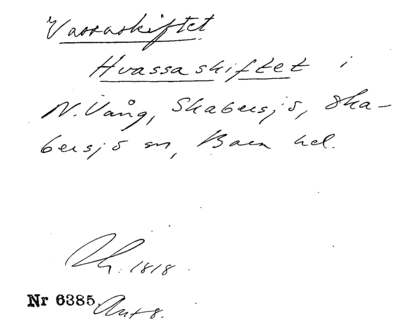 Vassaskiftet
Hvassaskiftet i
N. Vång, Skabersjö, Ska-
bersjö sn, Bara hd.
Lh. 1818.
Nr 6385. Akt 8.